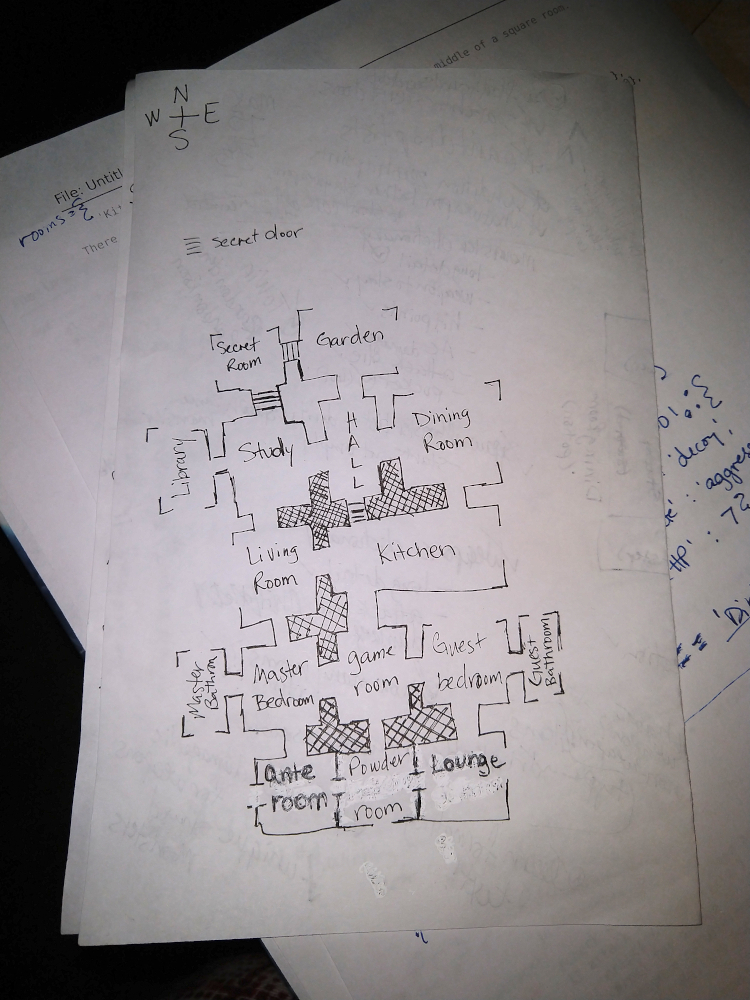 middle of a square room.
N
W E
S
File: Untitl
rooms={
'Ki'
There
secret door
Secret
Room
Garden
Library
Study
H
A
L
L
Dining
Room
Living
Room
Kitchen
Master
Bathrom
Master
Bedroom
game
room
Guest
bedroom
Guest
Bathroom
ante
room
Powder
room
Lounge
01:{
decoy,
: aggress
HP: 72
== 'Di